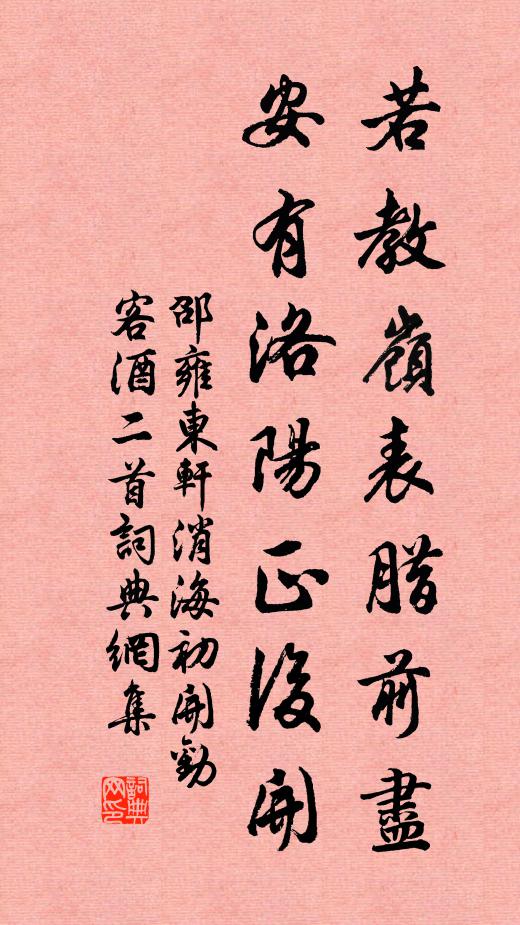 若教嶺表腊前盡
安有洛陽正後開
邵雍東軒消海初開勸
客酒二首詞典網集
詞典網印